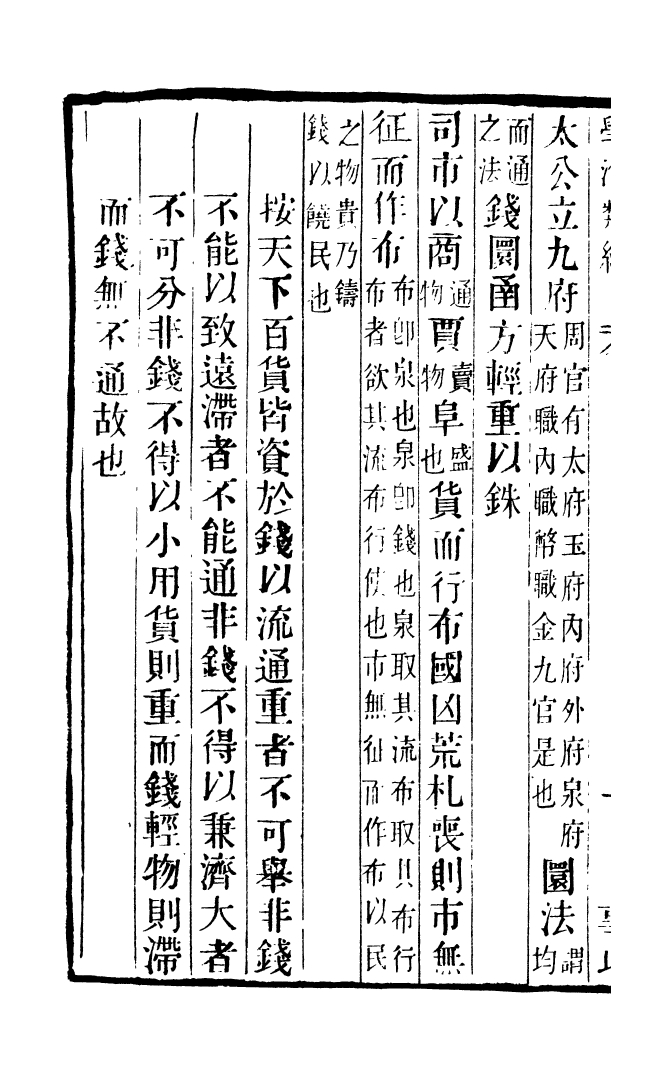 太公立九府周官有太府玉府內府外府泉府天府職內職幣職金九官是也圜法謂均
而通之法錢圜函方輕重以銖
司市以商通物賈賣物阜盛也貨而行布國凶荒札喪則市無
征而作布布卽泉也泉卽錢也泉取其流布取其布行布者欲其流布行使也市無征而作布以民
之物貴乃鑄錢以饒民也
按天下百貨皆資於錢以流通重者不可舉非錢
不能以致遠滯者不能通非錢不得以兼濟大者
不可分非錢不得以小用貨則重而錢輕物則滯
而錢無不通故也